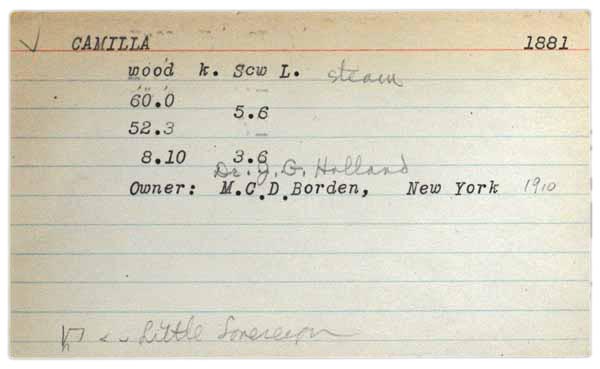 CAMILLA 1881
wood k. Scw L. steam
60.0
5.6
52.3
8.10 3.6
Dr. J. G. Holland
Owner: M.C.D.Borden, New York 1910
Little Sovereign